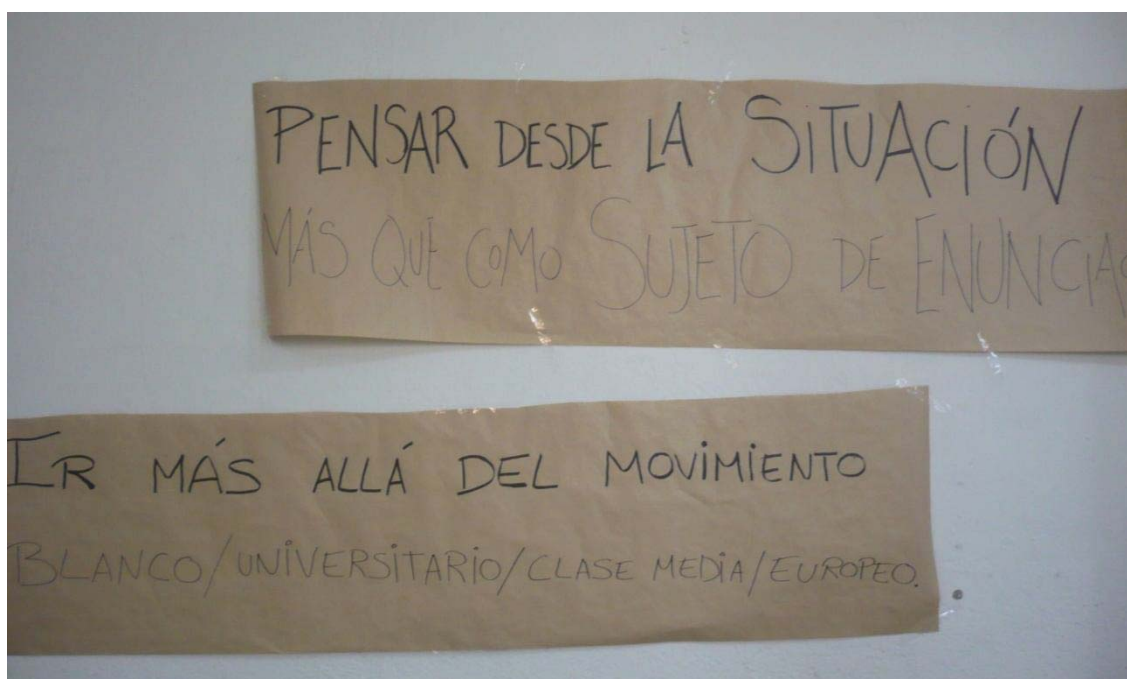 PENSAR DESDE LA SITUACIÓN
MÁS QUE COMO SUJETO DE
IR MÁS ALLÁ DEL MOVIMIENTO
BLANCO/UNIVERSITARIO/CLASE MEDIA/EUROPEO.